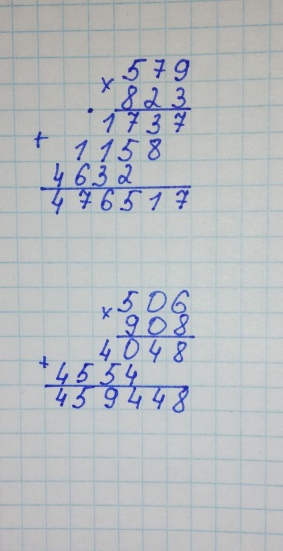 × 579
823
1737
+ 1158
4632
476517
× 506
908
4048
+ 4554
459448